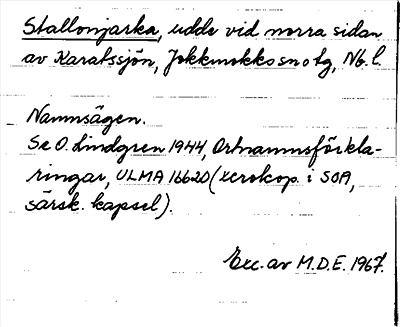 Stallonjarka, udde vid norra sidan
av Karatssjön, Jokkmokks sn o tg, Nb. l.
Namnsägen.
Se O. Lindgren 1944, Ortnamnsförkla-
ringar, ULMA 16620 (xerokop. i SOA,
särsk. kapsel).
Exc. av M.D.E. 1967.